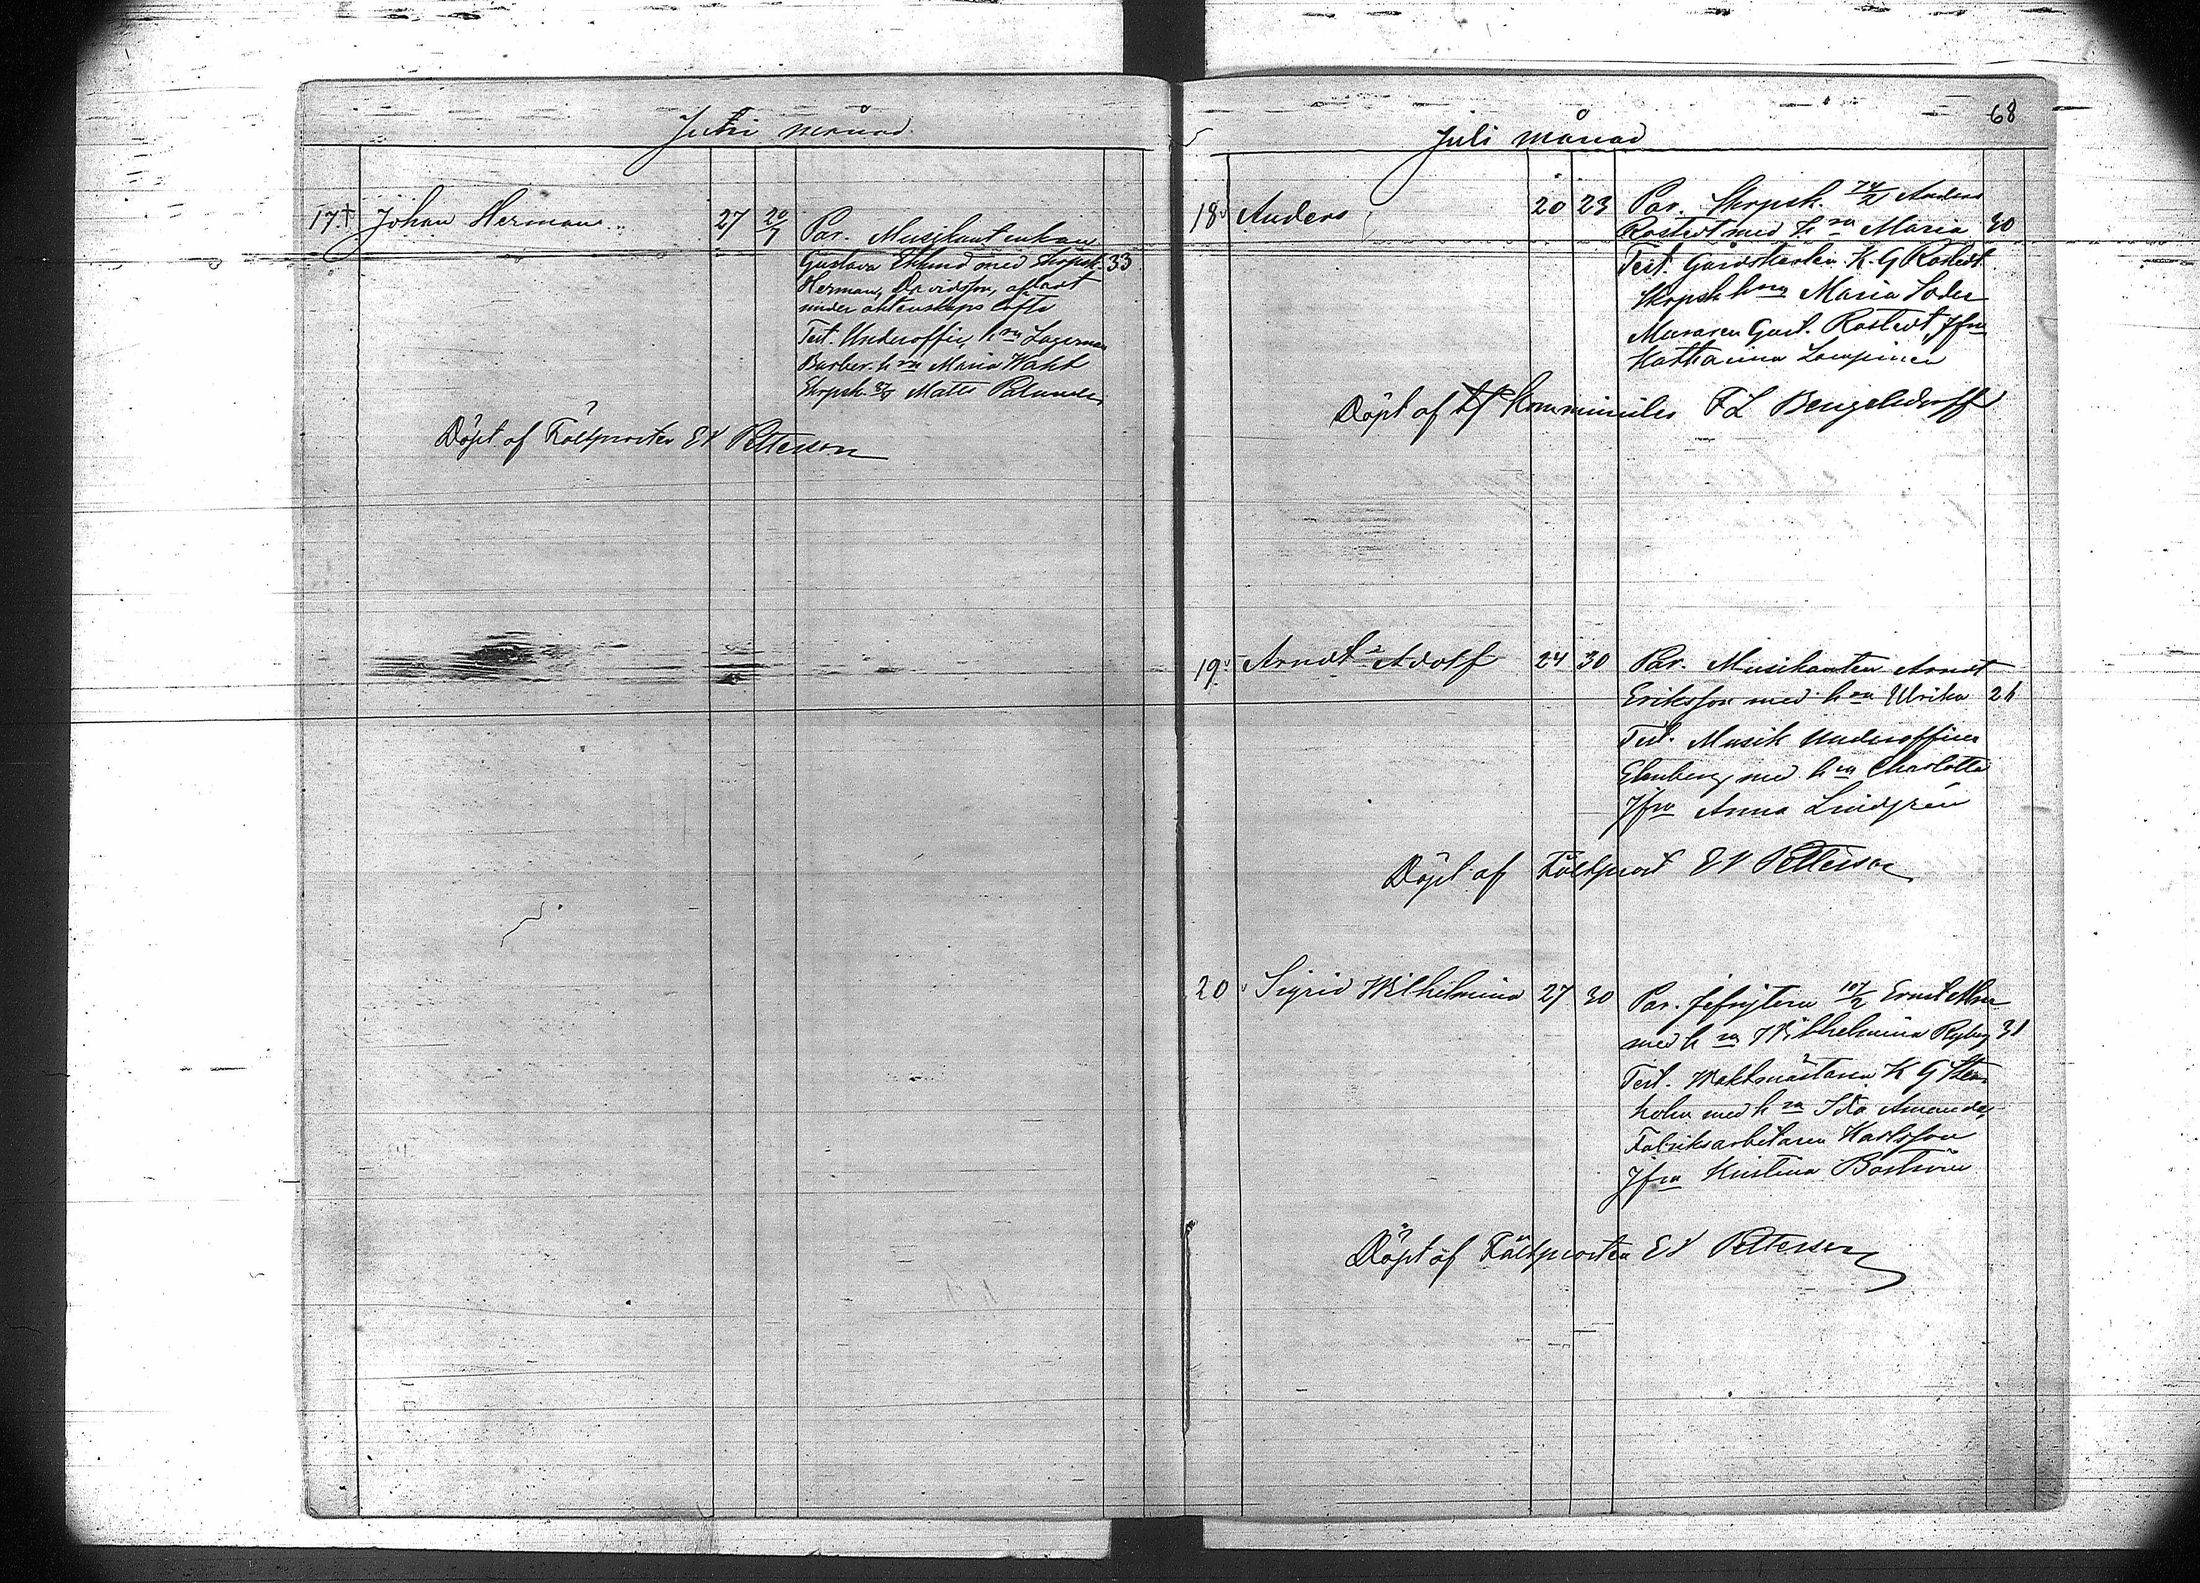 Juni månad
17 † Johan Herman 27 20/7 Par. Musikantenkan
Gustava Eklund med skrpsk. 33
Herman Davidsson, afladt
under äktenskaps löfte
Test. Underoffic. hru Lagerman
Barber. hru Maria Wahl
Skrpsk. Matts Palander
Döpt af Fältprosten E V Petterson
68
Juli månad
18 Anders 20 23 Par. Skrpsk. 74/2 Anders
Rostedt med hru Maria 30
Test. Gårdskarlen K. G Rostedt
Skrpsk hru Maria Söder
Muraren Gust. Rostedt, Jfru
Katharina Lampinen
Döpt af Komminister F L Bengelsdorff
19 Arndt Adolf 24 30 Par. Musikanten Arndt
Eriksson med hru Ulrika 26
Test. Musik Underofficer
Ekenberg med hru Charlotta
Jfru Anna Lindgrén
Döpt af Fältprost E V Petterson
20 Sigrid Wilhelmina 27 30 Par. Gefrejtern 107/2 Ernst
med hru Wilhelmina Ryberg 31
Test. Waktmästaren K G Sten
holm med hru Ida Amanda,
Fabriksarbetaren Karlsson
Jfru Kristina Boström
Döpt af Fältprosten E V Petterson